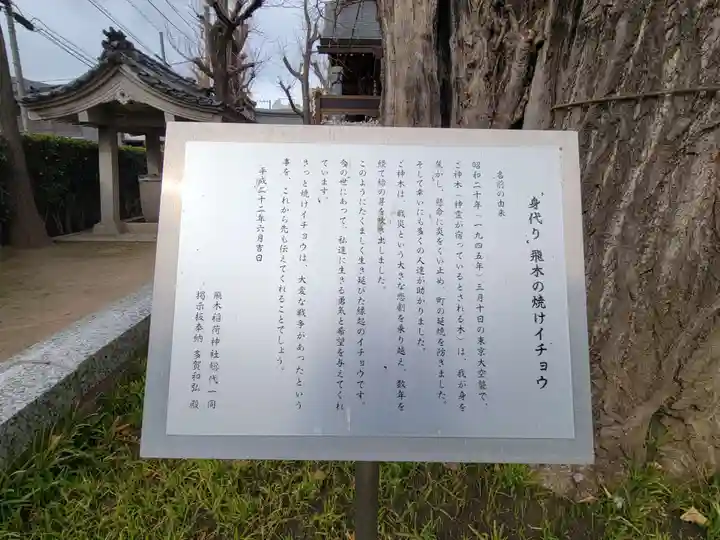 “身代り”飛木の焼けイチョウ
名前の由来
昭和二十年(一九四五年)三月十日の東京大空襲で、
ご神木(神霊が宿っているとされる木)は、我が身を
焦がし、懸命に炎をくい止め、町の延焼を防ぎました。
そして幸いにも多くの人達が助かりました。
ご神木は、戦災という大きな悲劇を乗り越え、数年を
経て緑の芽を吹き出しました。
このようにたくましく生き延びた縁起のイチョウです。
今の世にあつて、私達に生きる勇気と希望を与えてくれ
ています。
きっと焼けイチョウは、大変な戦争があったという
事を、これから先も伝えてくれることでしょう。
平成二十二年六月吉日
飛木稲荷神社総代一同
掲示板奉納 多賀和弘 殿